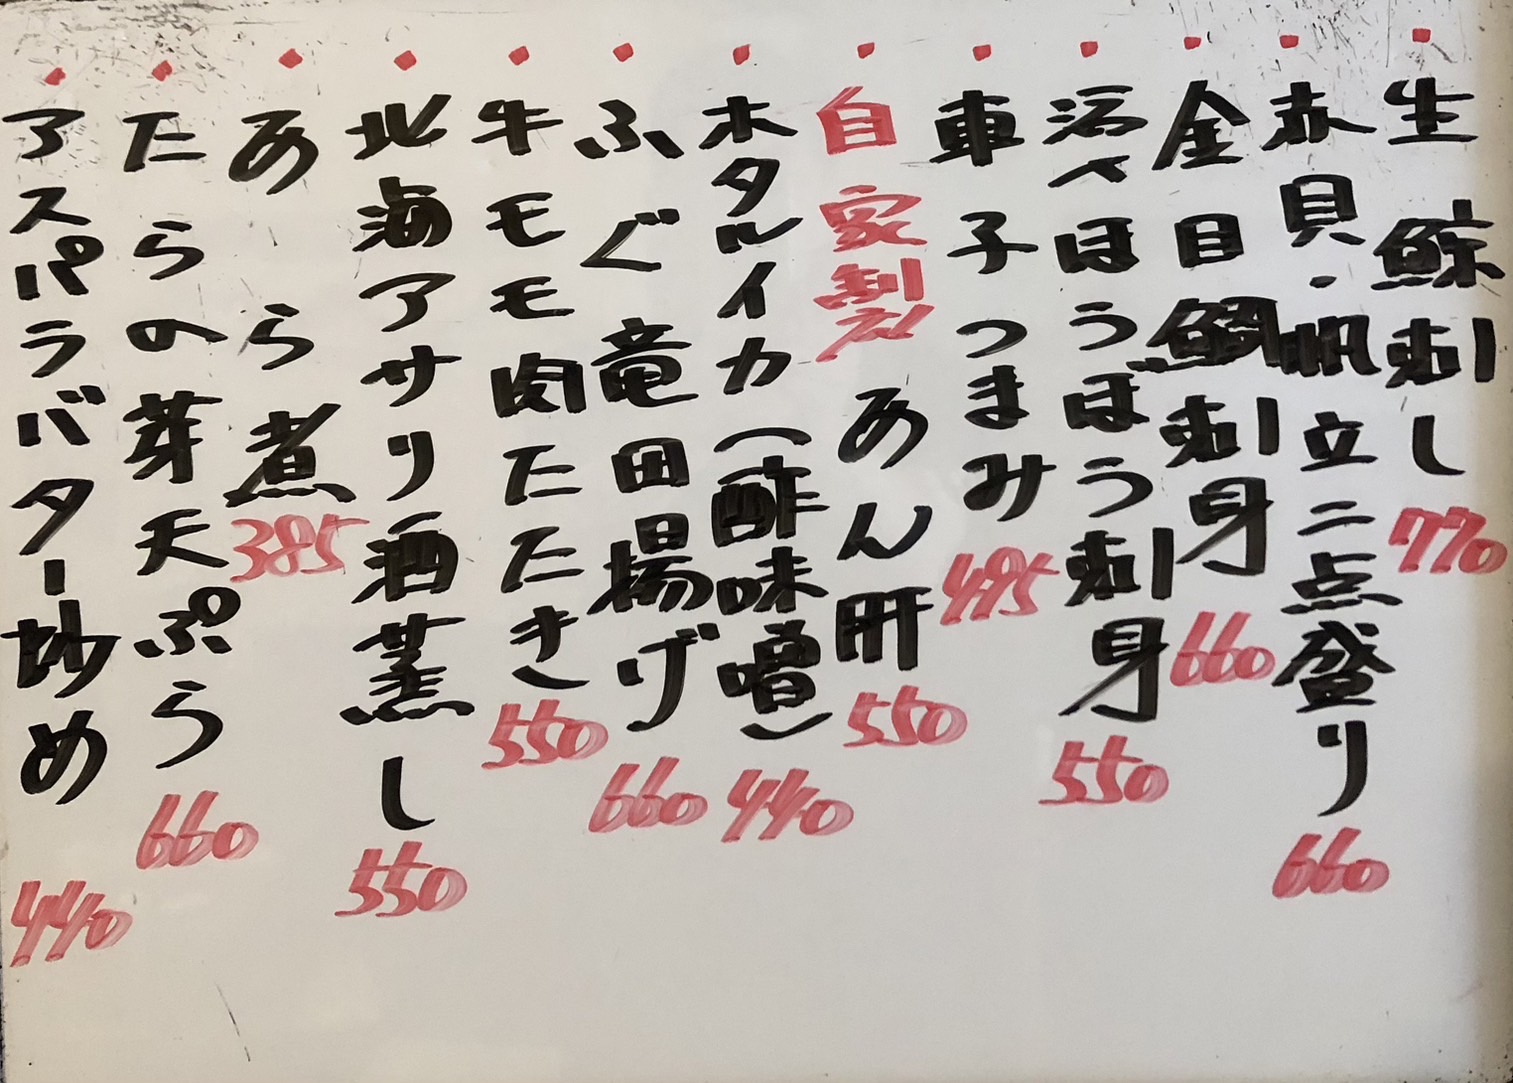 生鯨刺し 770
赤貝・帆立二点盛り 660
金目鯛刺身 660
活〆ほうぼう刺身 550
車子つまみ 495
自家製あん肝 550
ホタルイカ(酢味噌) 440
ふぐ竜田揚げ 660
牛モモ肉たたき 550
北海アサリ酒蒸し 550
あら煮 385
たらの芽天ぷら 660
アスパラバター炒め 440